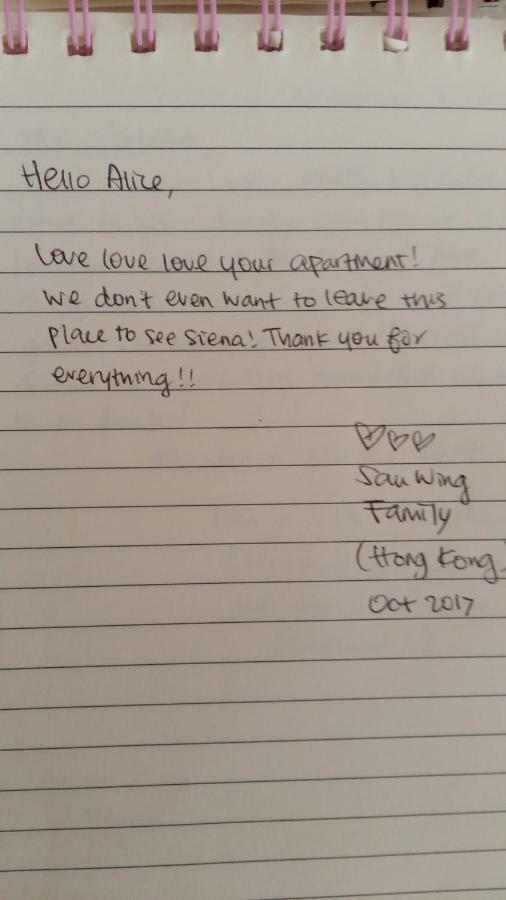 Hello Alice,
Love love love your apartment!
We don't even want to leave this
place to see Siena! Thank you for
everything!!
♡♡♡
Sau Wing
Family
(Hong Kong
Oct 2017